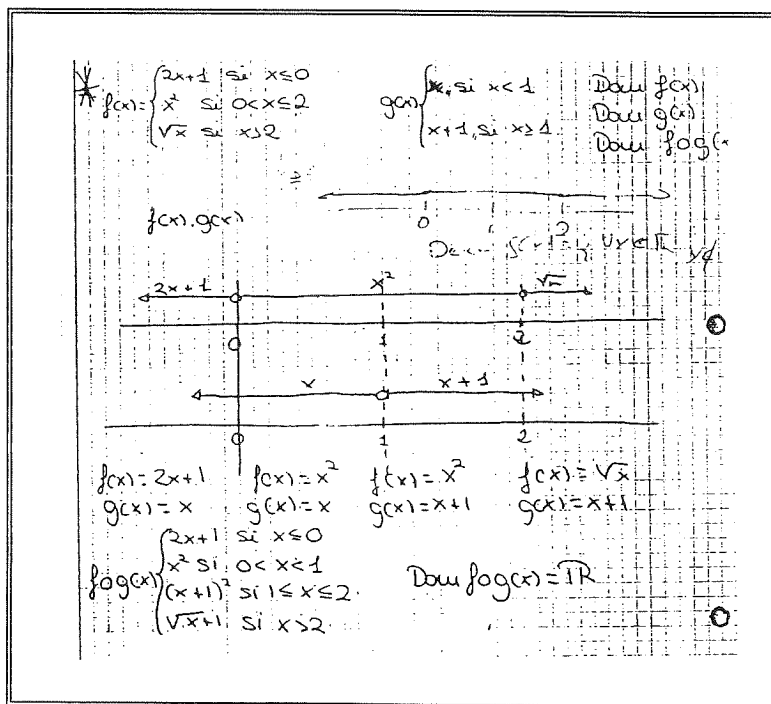 f(x)= { 2x+1 si x≤0
x² si 0<x≤2
√x si x>2
g(x) { x, si x<1
x+1, si x≥1
Dom f(x)
Dom g(x)
Dom fog(x
f(x).g(x)
0 2
2x+1 x² √x
0 1 2
x x+1
0 1 2
f(x)=2x+1 f(x)=x² f(x)=x² f(x)=√x
g(x)=x g(x)=x g(x)=x+1 g(x)=x+1
fog(x) { 2x+1 si x≤0
x² si 0<x<1
(x+1)² si 1≤x≤2
√x+1 si x>2
Dom fog(x)=IR